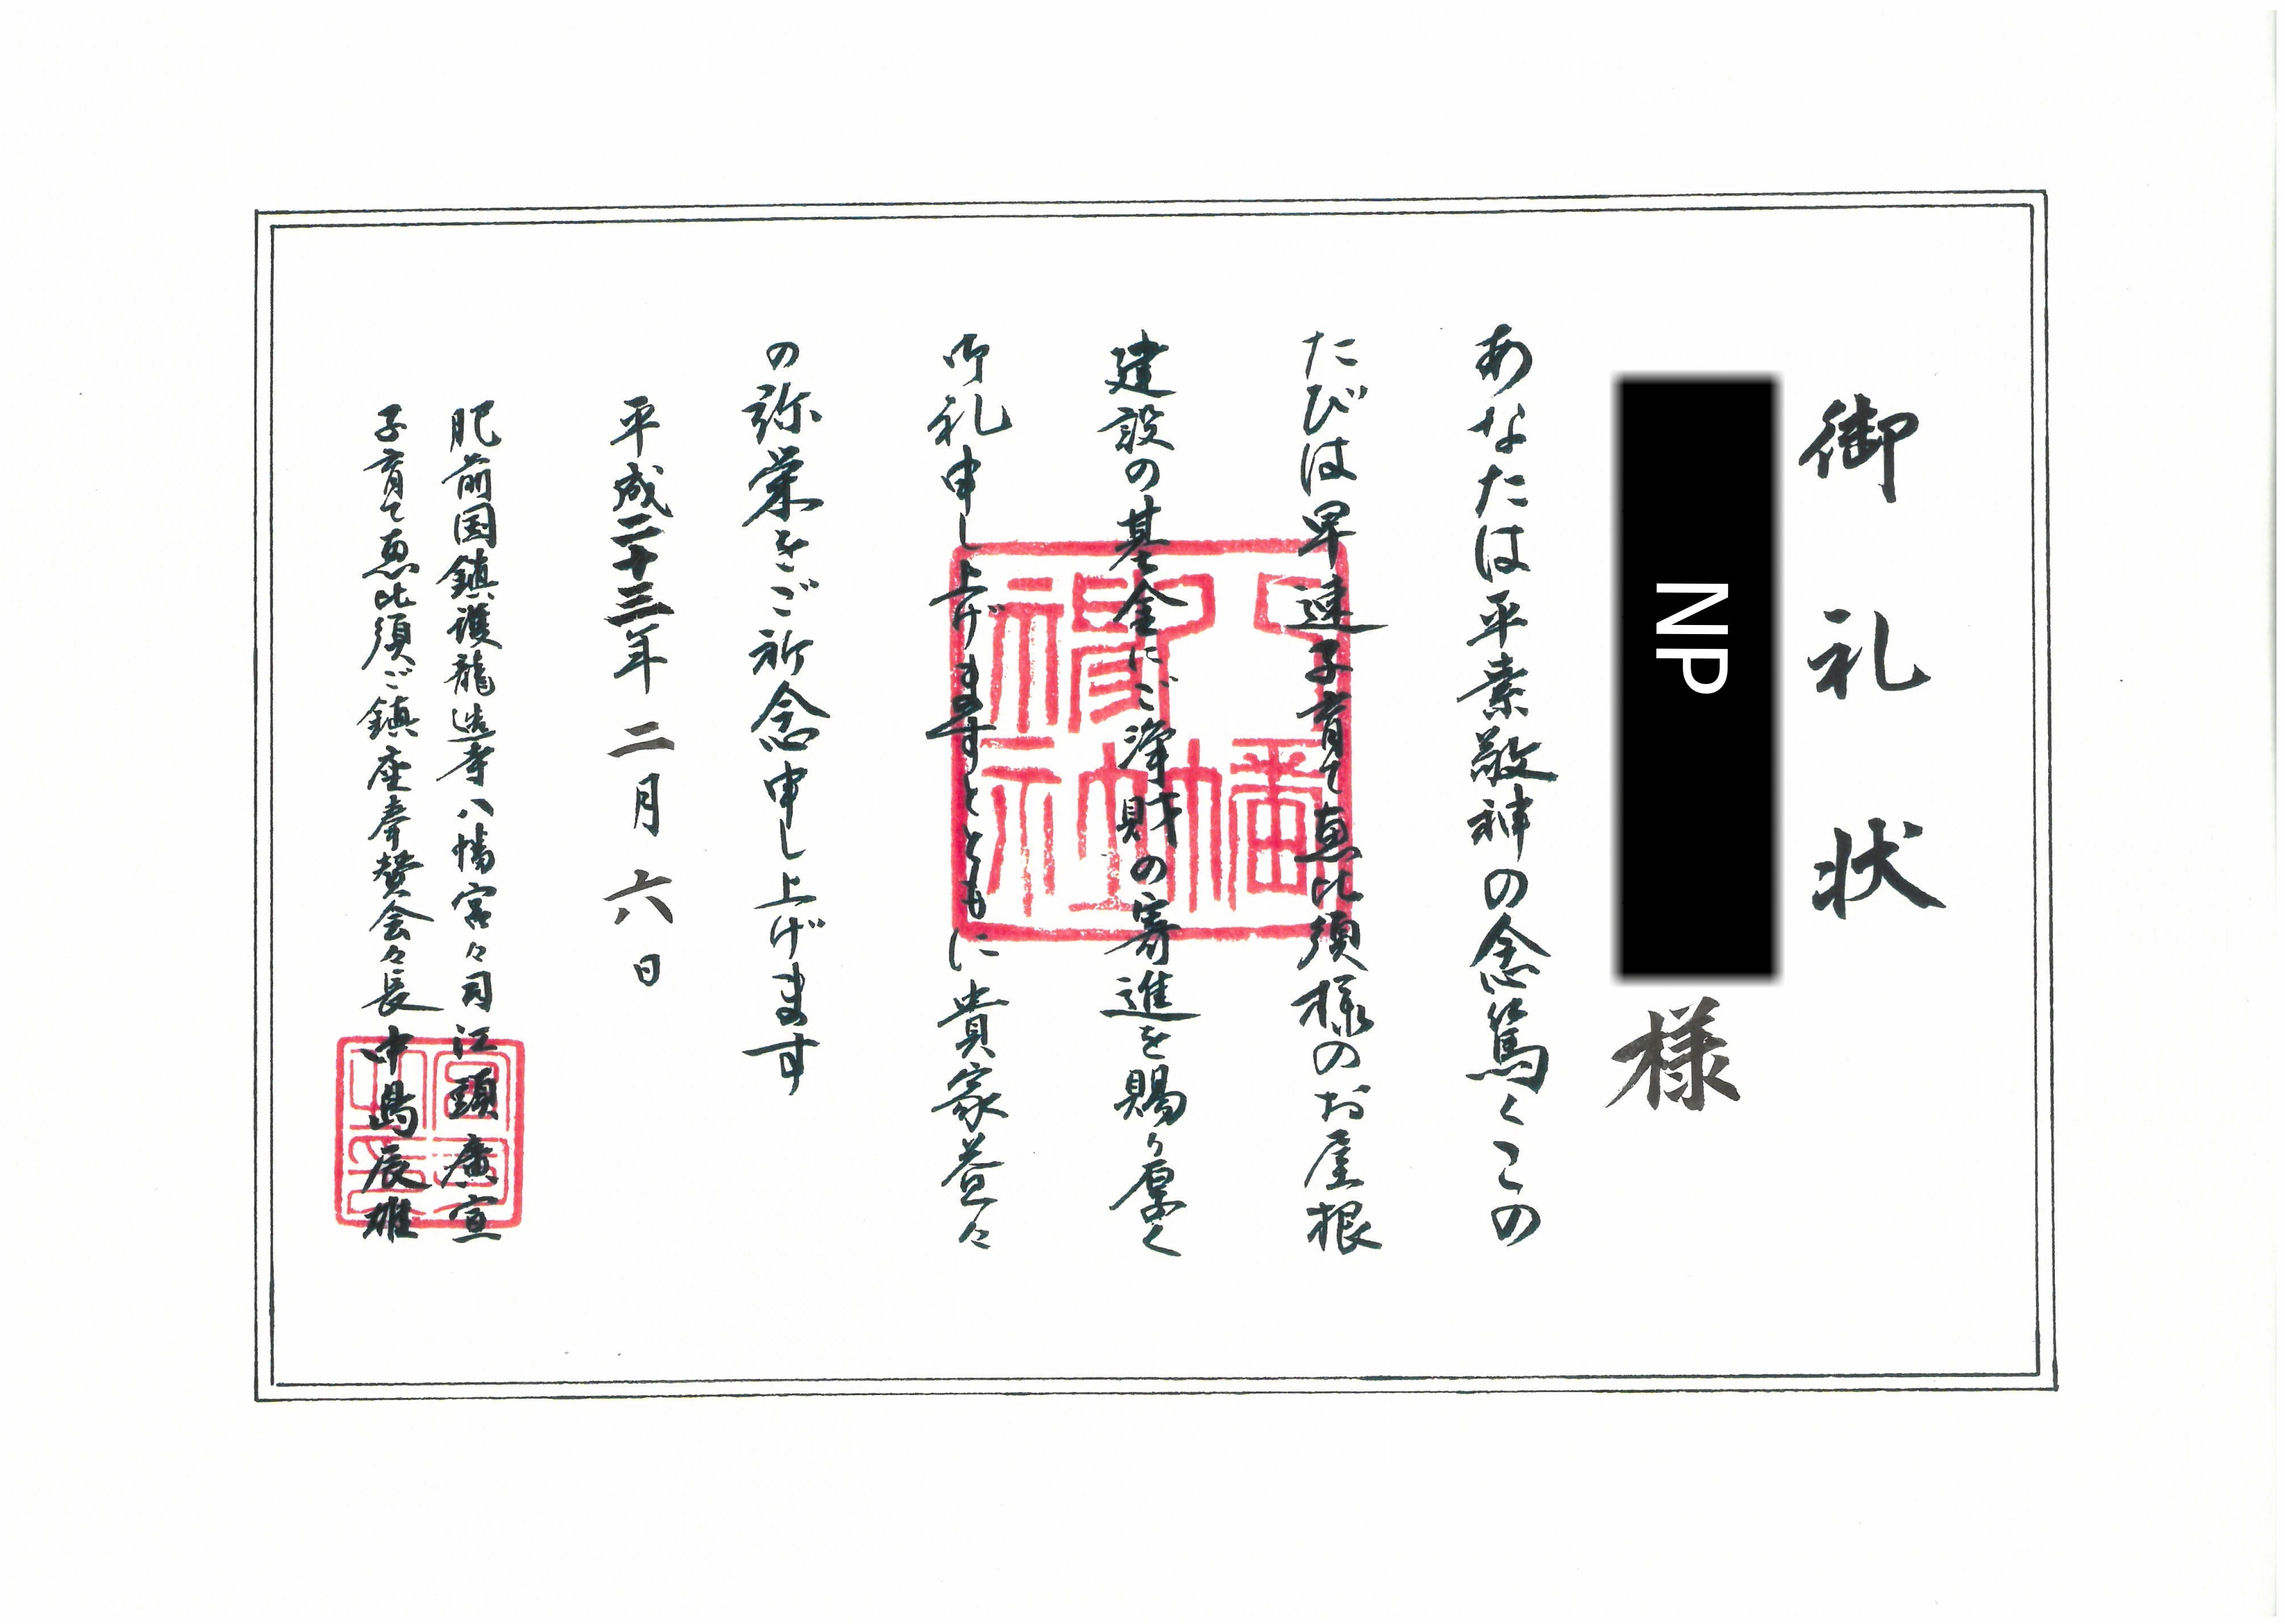 御礼状
NP
様
あなたは平素敬神の念篤くこの
たびは早速子育て恵比須様のお屋根
建設の基金にご浄財の寄進を賜り厚く
御礼申し上げますとともに貴家益々
の弥栄をご祈念申し上げます
平成二十三年二月六日
肥前国鎮護龍造寺八幡宮々司江頭廣宣
子育て恵比須ご鎮座奉賛会々長中島辰雄